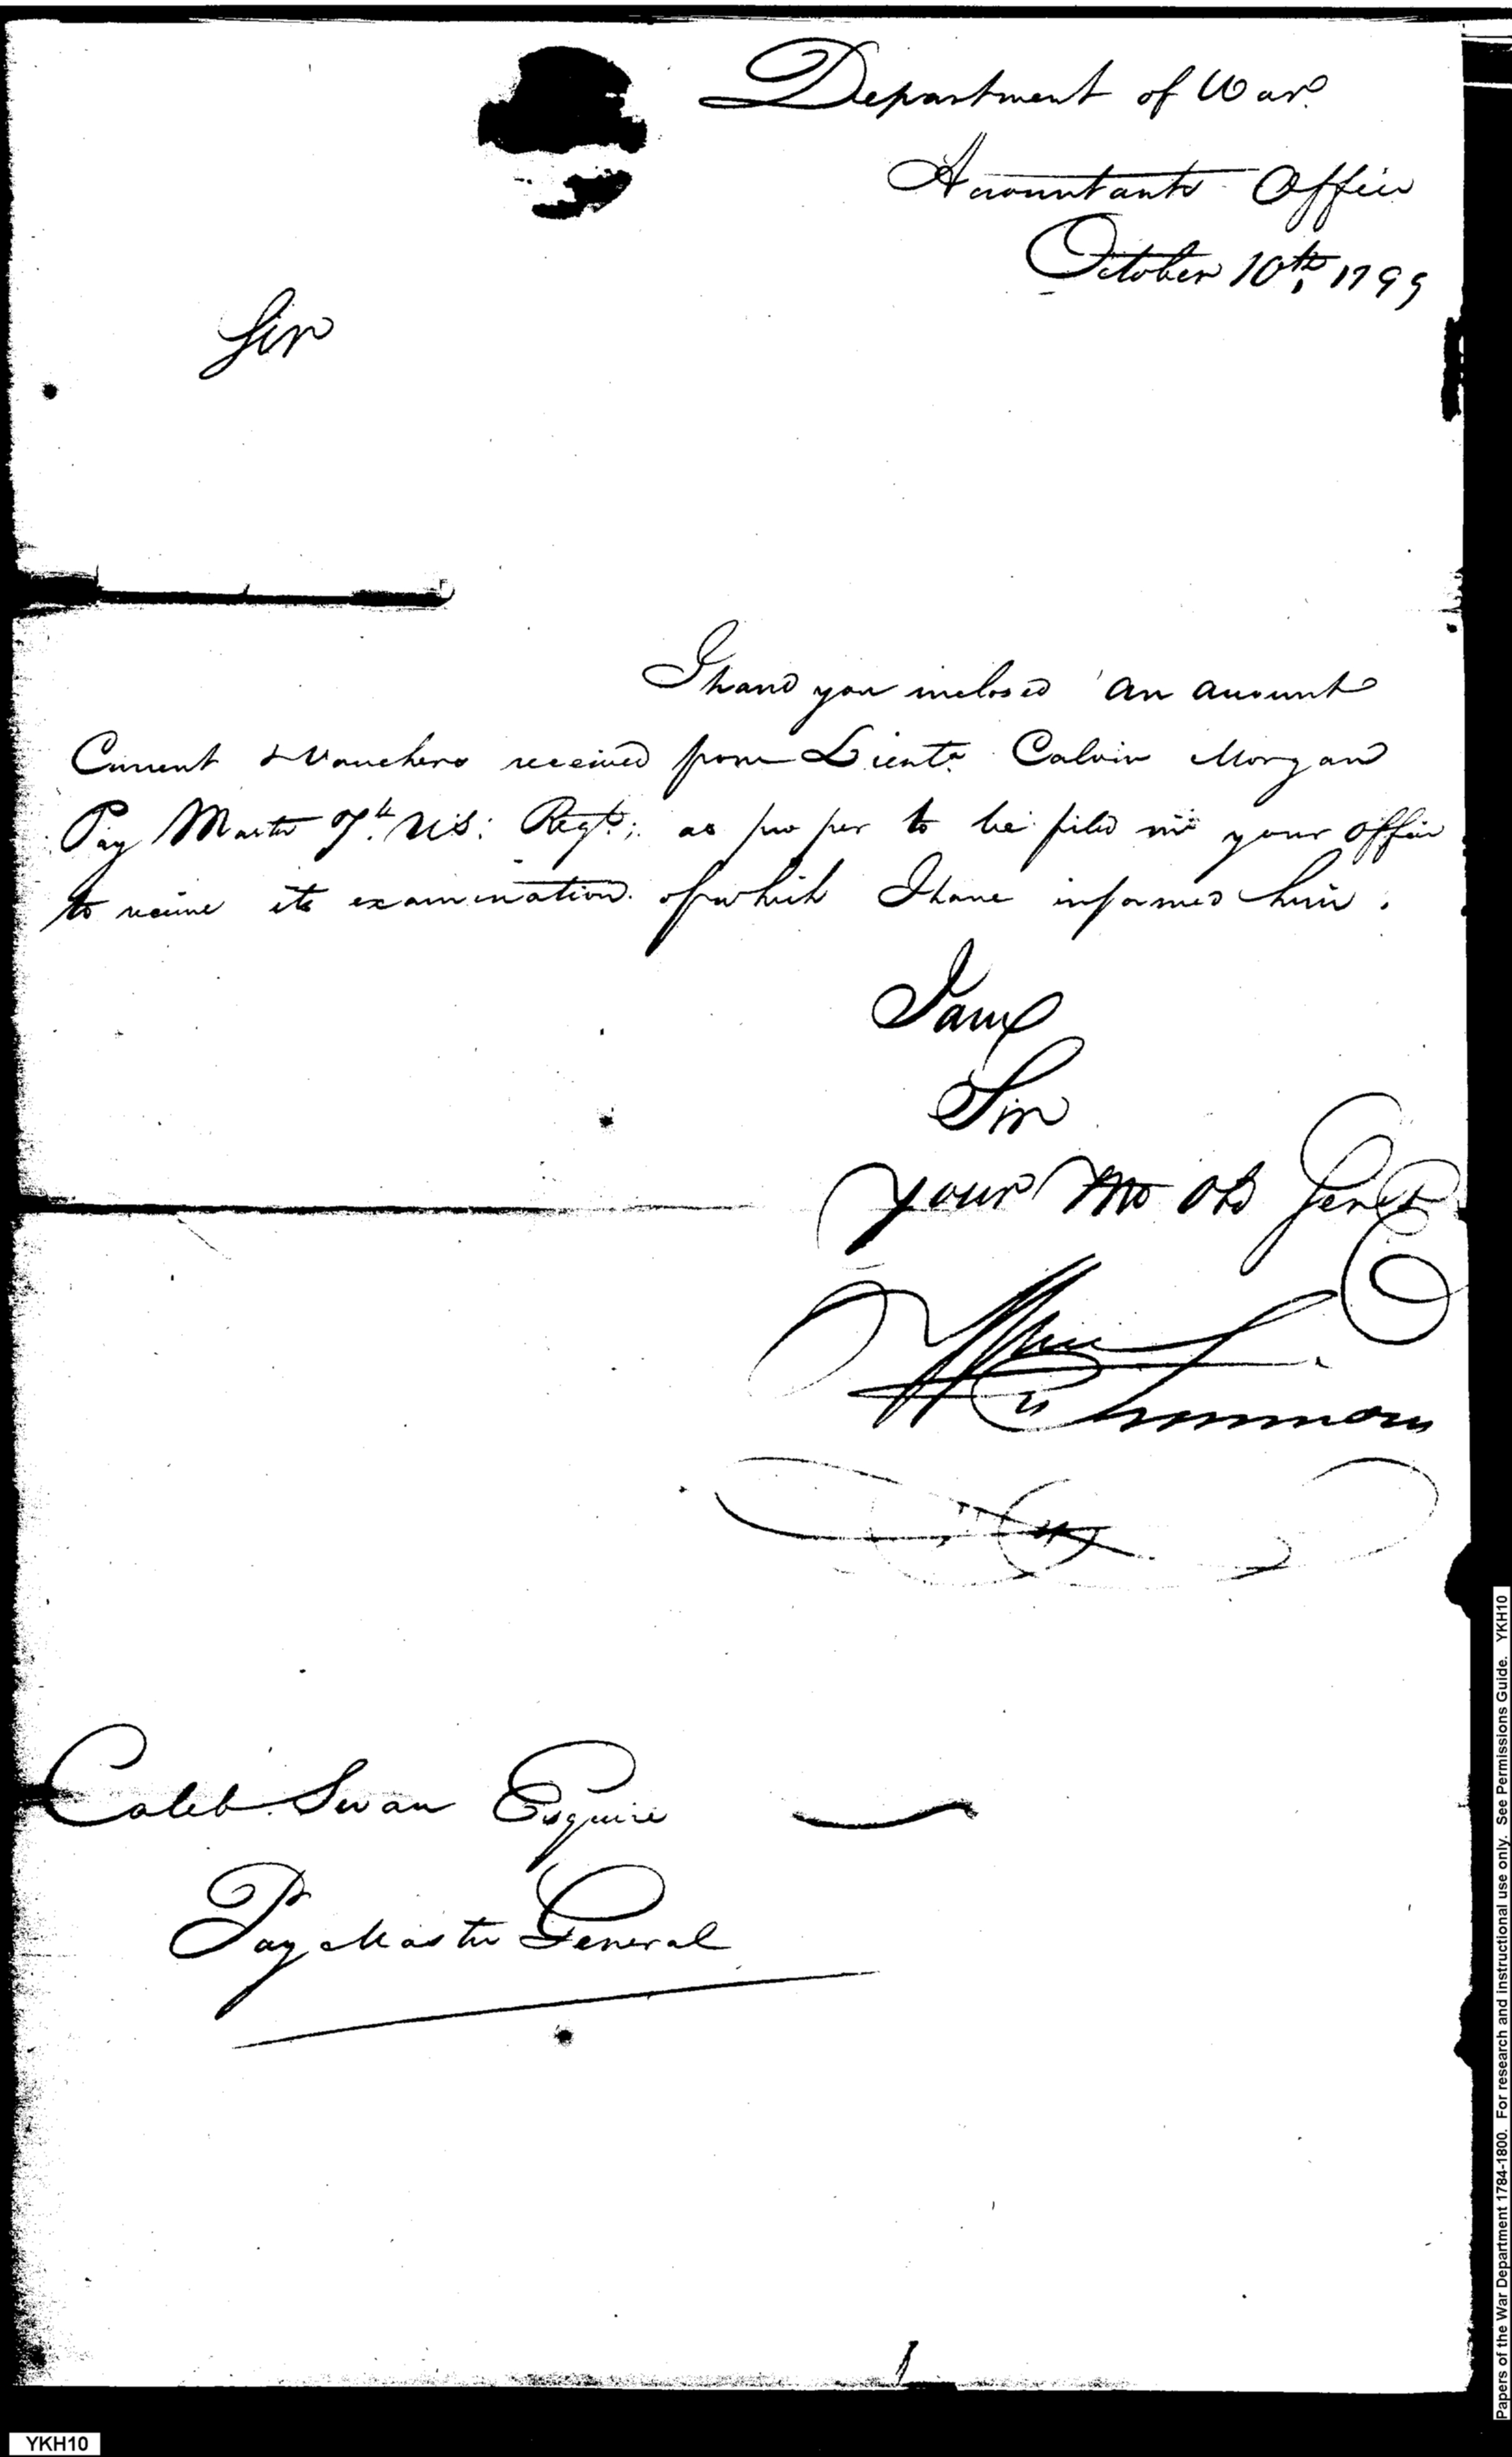 Department of War
Accountants Office
October 10th, 1799
Sir
I hand you inclosed an account
Current & Vouchers received from Lieut. Calvin Morgan
Pay Master 7th. US: Regt:; as proper to be filed in your office
to receive its examination of which I have informed him.
I am
Sir
your Mo Ob Servt
Wm Simmons
Caleb Swan Esquire
Pay Master General
Papers of the War Department 1784-1800. For research and instructional use only. See Permissions Guide. YKH10
YKH10